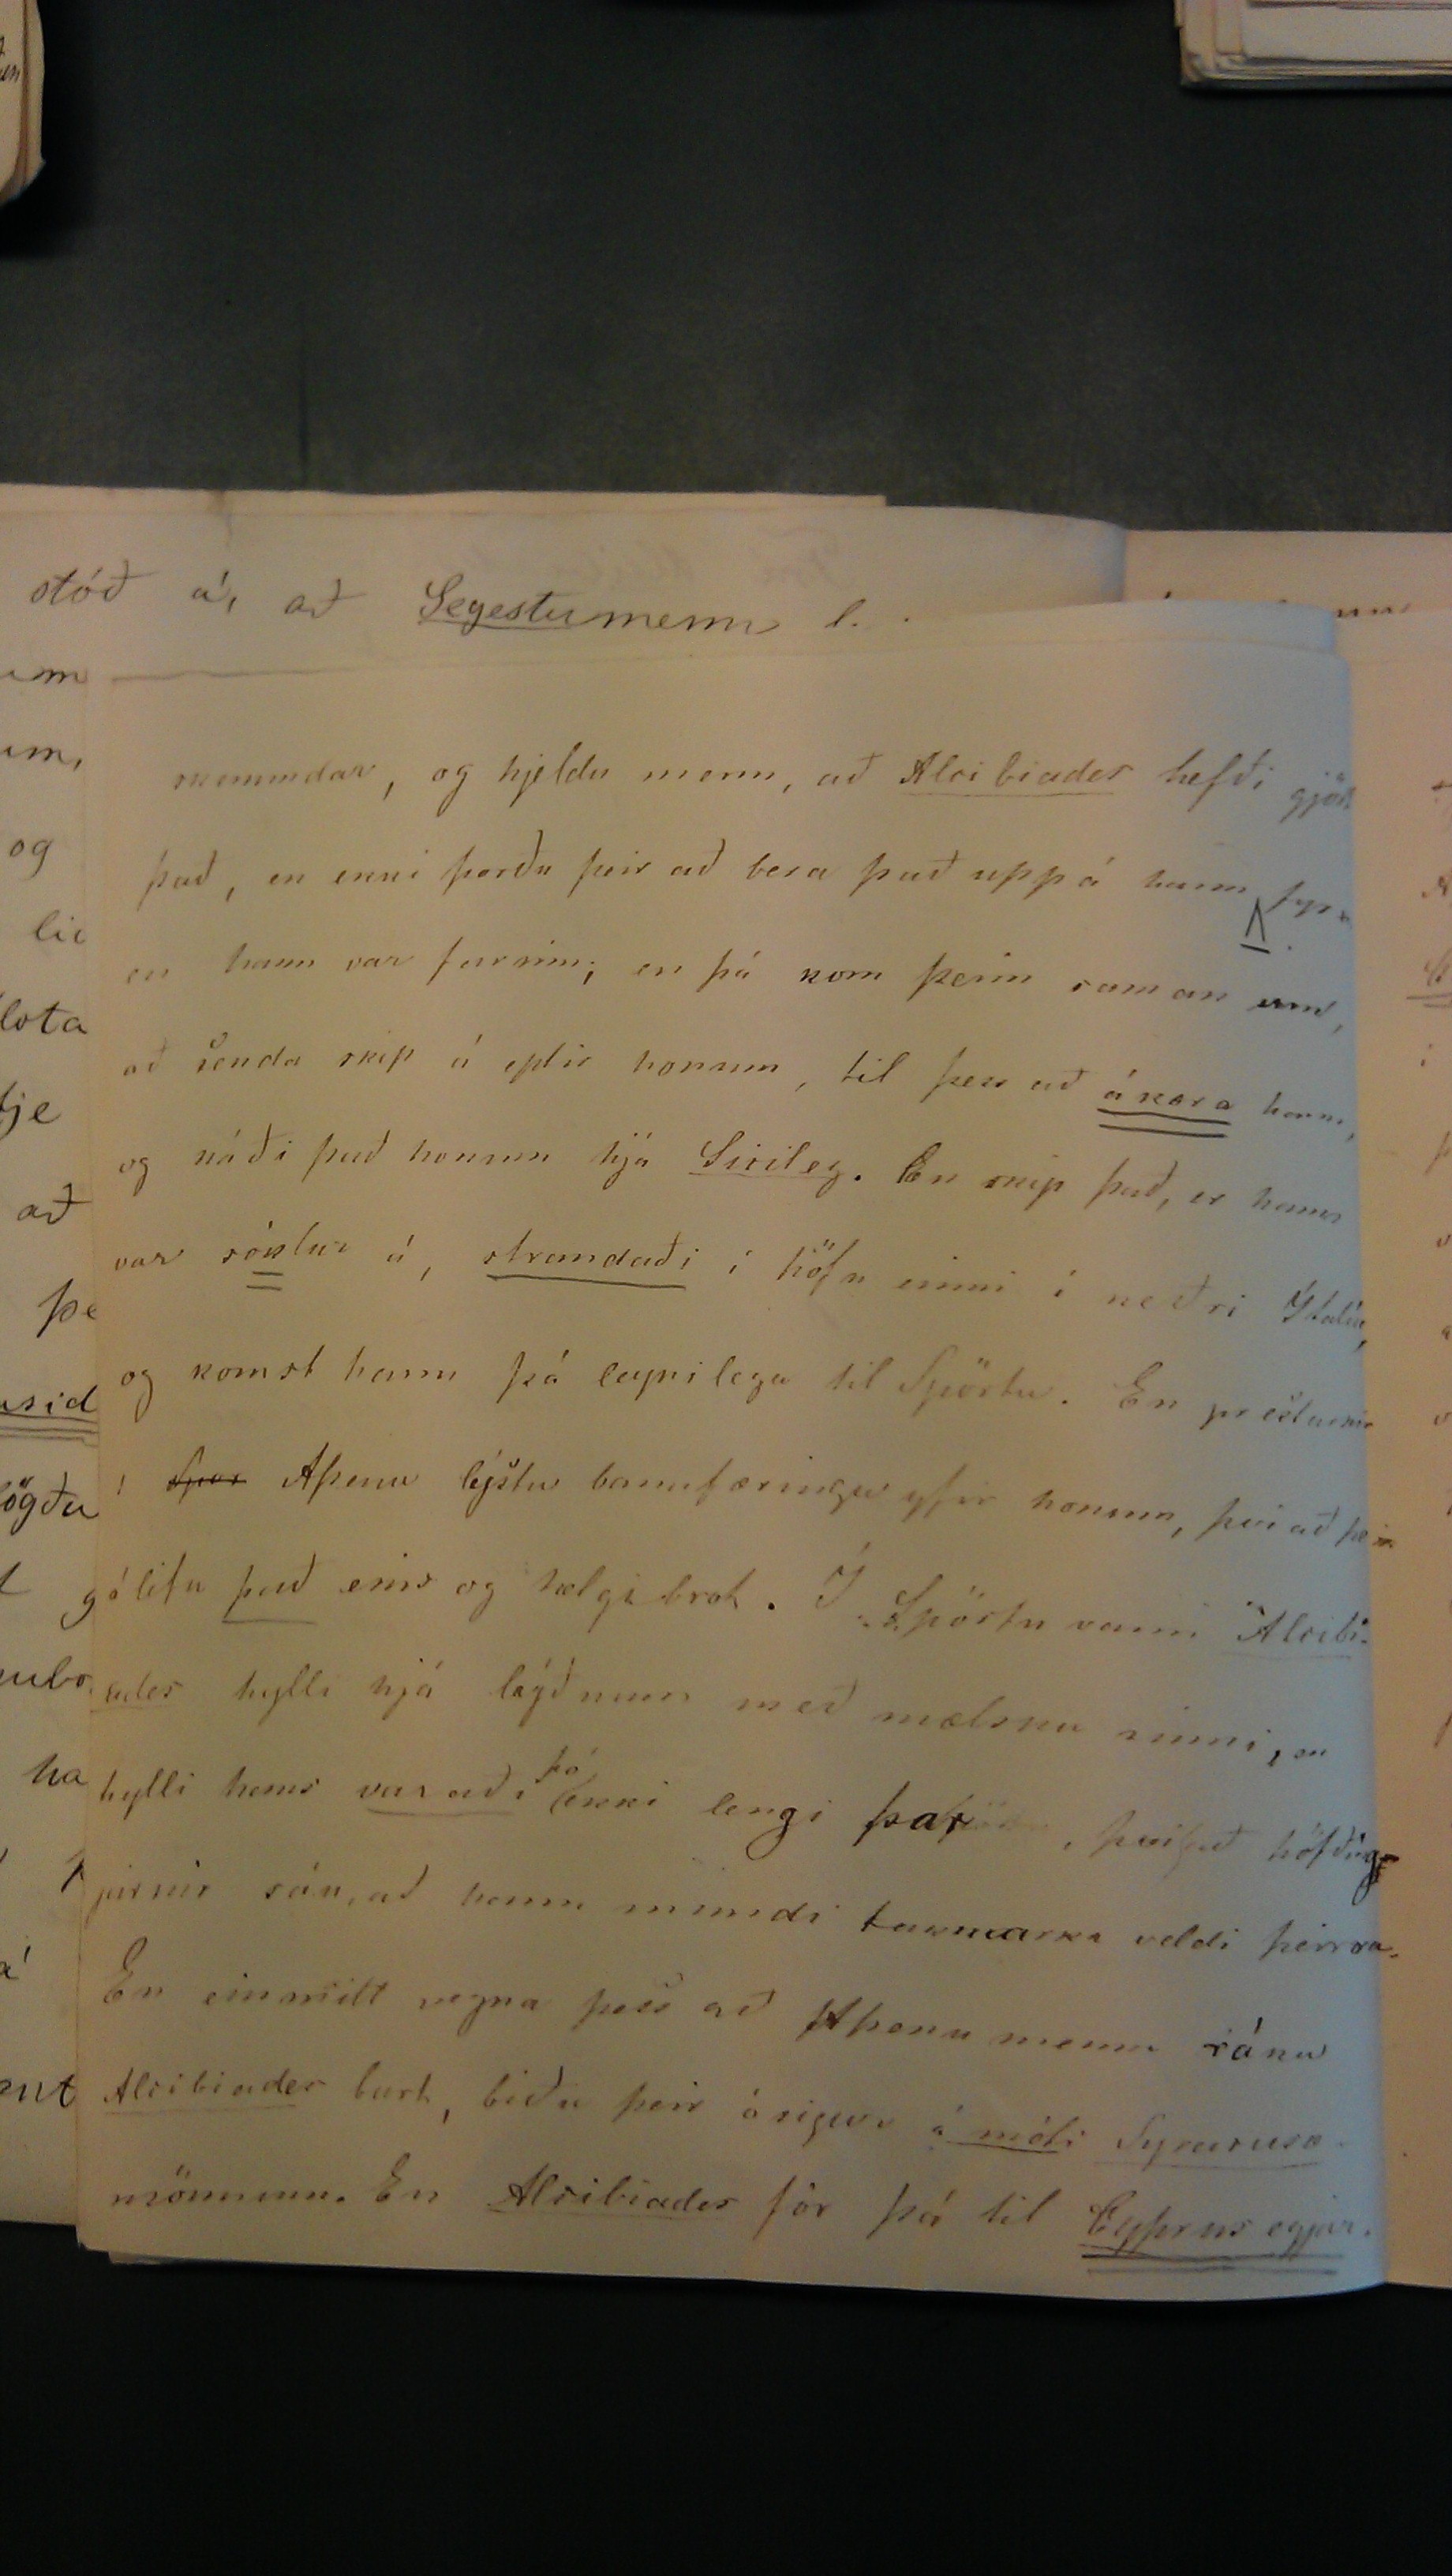 stóð á, að Segestumenn l.
skemmdar, og hjeldu menn, að Alcibiades hefði gjört
það, en ekki þorðu þeir að bera það uppá hann fyr
en hann var farinn; en þá kom þeim saman um,
að senda skip á eptir honum, til þess að ákæra hann,
og náði það honum hjá Siciley. En skip það, er hann
var sóktur á, strandaði í höfn einni í neðri Ítalíu,
og komst hann þá leynilega til Spörtu. En prestarnir
í Spar Aþenu lýstu bannfæringu yfir honum, því að þeir
álitu það eins og helgibrot. Í Spörtu vann Alcibi-
ades hylli hjá lýðnum með mælsku sinni, en
hylli hans varaði þó ekki lengi þar, því að höfðing-
jarnir sáu, að hann mundi takmarka veldi þeirra.
En einmitt vegna þess að Aþenumenn ráku
Alcibiades burt, biðu þeir ósigur á móti Syracusa-
mönnum. En Alcibiades fór þá til Cyprus eyjar.
um
um,
og
lota
að
þe
usid
lögðu
ha